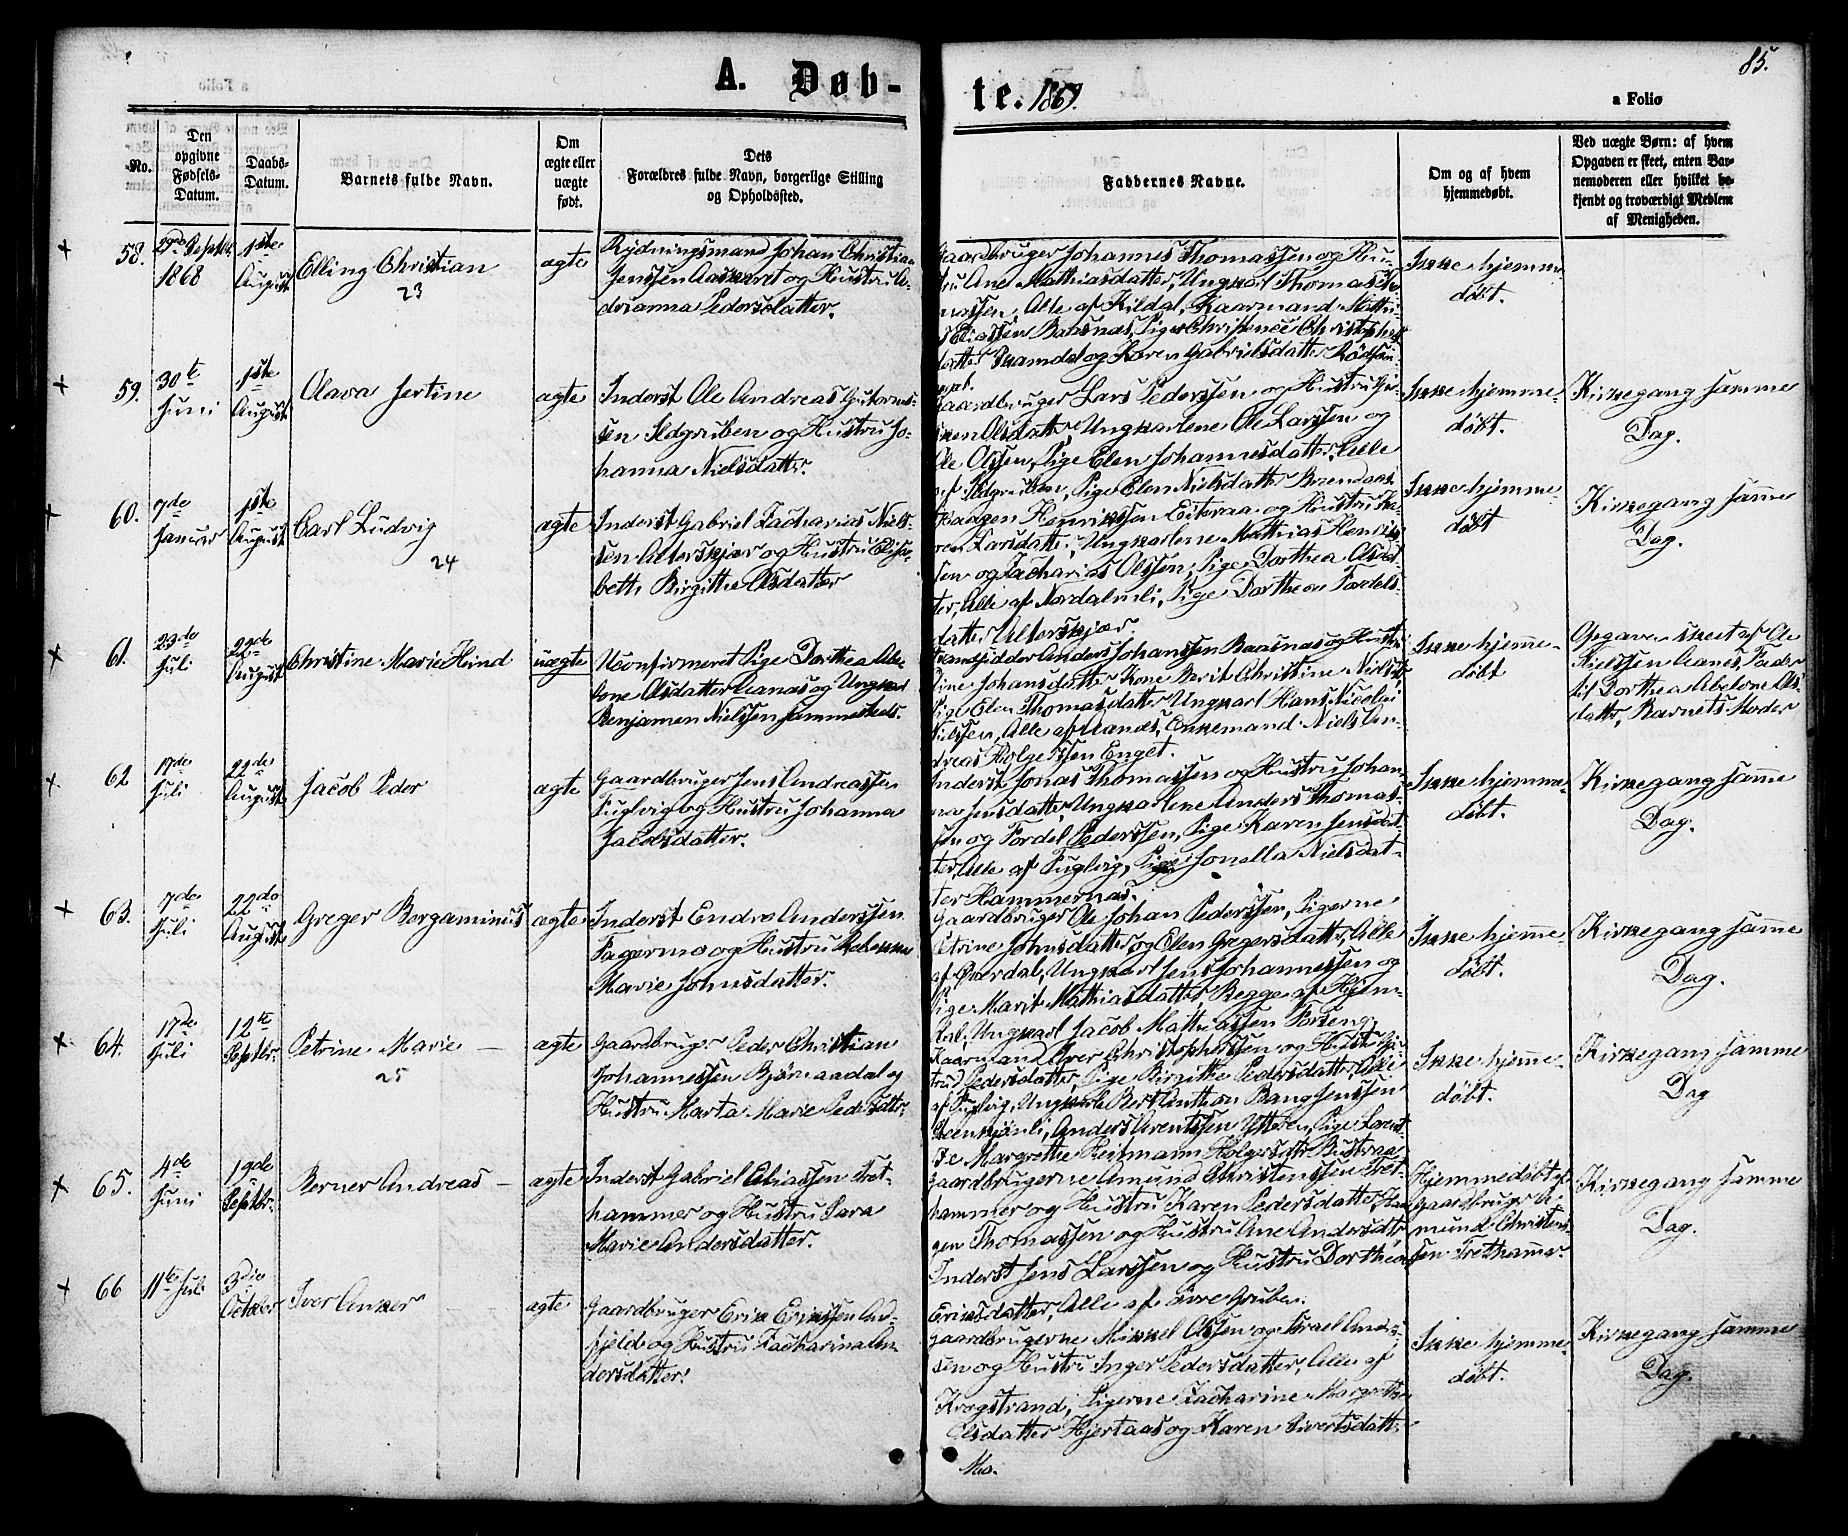 85.
A. Døb-
te. 1869.
a Folio
No.
Den
opgivne
Fødsels-
Datum.
Daabs-
Datum.
Barnets fulde Navn.
Om
ægte eller
uægte
født.
Dets
Forældres fulde Navn, borgerlige Stilling
og Opholdssted.
Faddernes Navne.
Om og af hvem
hjemmedøbt.
Ved uægte Børn: af hvem
Opgaven er skeet, enten Bar-
nemoderen eller hvilket be-
kjendt og troværdigt Medlem
af Menigheden.
58.
1868
1ste
August
Elling Christian
23
ægte
Rydningsmand Johan Christian
Jenssen og Hustru A-
drianna Pedersdatter.
Gaardbruger Johannes Thomassen og Hu-
stru Ane Mathiasdatter, Ungkarl Thomas Tho-
massen, Alle af Kildal, Kaarmand Mathi-
Eliassen Baasnæs, Pige Christence Christophers
datter og Karen Gabrielsdatter
Ikke hjemme
døbt.
59.
30te
Juni
1ste
August
Olava Jertine
ægte
Inderst Ole Andreas Gutorms-
sen Ildgruben og Hustru Jo-
hanna Nielsdatter.
Gaardbruger Lars Pederssen og Hustru
Olsdatter, Ungkarlene Ole Larssen og
Ole Olssen, Pige Elen Johannesdatter, Alle
af Ildgruben, Pige Elen Nielsdatter
Ikke hjemme-
døbt.
Kirkegang samme
Dag.
60.
7de
Januar
1ste
August
Carl Ludvig
24
ægte
Inderst Gabriel Zacharias Niels-
sen Alterskjær og Hustru Elisa-
beth Birgitte Olsdatter
Haagen Henrikssen Eiteraa og Hustru Ka-
ren Larsdatter, Ungkarlene Mathias Henriks-
sen og Zacharias Olssen, Pige Dorthea Olsdat-
ter, Alle af Nordalsnli, Pige Dorthea Tordels-
datter Alterskjær
Ikke hjemme-
døbt
Kirkegang samme
Dag.
61.
23de
Juli
22de
August
Christine Marie Hind
uægte
Uconfirmeret Pige Dorthea Abe-
lone Olsdatter Aanæs og Ungkarl
Benjamen Nielssen sammesteds.
Strandsidder Anders Johanssen Baasnæs og Hustru
line Johansdatter, Kone Berit Christine Nielsdt.
Pige Elen Thomasdatter, Ungkarl Hans Nicolai
Nielssen, Alle af Aanæs, Enkemand Niels An-
dreas Holgerssen Enget.
Ikke hjemme-
døbt
Opgaven skeet af Ole
Nielssen Aanes, Fader
til Dorthea Abelone Ols-
datter, Barnets Moder
62
17de
Juli
22de
August
Jacob Peder
ægte
Gaardbruger Jens Andreassen
Fuglvig og Hustru Johanna
Jacobsdatter.
Inderst Jonas Thomassen og Hustru Johan-
na Jensdatter, Ungkarlene Anders Thomas-
sen og Tordel Pederssen, Pige Karen Jensdat-
ter, Alle af Fuglvig, Pige Jonella Nielsdat-
ter Hammernæs.
Ikke hjemme-
døbt.
Kirkegang samme
Dag.
63.
7de
Juli
22de
August
Greger Bergaminus
ægte
Inderst Endre Anderssen
Fagermo og Hustru Rebekka
Marie Johnsdatter.
Gaardbruger Ole Johan Pederssen, Pigerne
Petrine Johnsdatter og Elen Gregersdatter, Alle
af Ørrdal, Ungkarl Jens Johannessen og
Pige Marit Mathiasdatter, Begge af Hjem-
dal, Ungkarl Jacob Mathiassen Forseng
Ikke hjemme-
døbt.
Kirkegang samme
Dag.
64.
17de
Juli
12te
Septbr.
Petrine Marie
25
ægte
Gaardbruger Peder Christian
Johannessen Bjørnaadal og
Hustru Marta Marie Pedersdtr.
Kaarmand Iver Christophersen og Hustru Gje-
trud Pedersdatter, Pige Birgithe Pedersdatter, Alle
af Fuglvig, Ungkarle Bert Anthon Bangjenssen
Steenkjønli, Anders Arentssen Ytteren, Pige Laurit-
ze Margrethe Reitmann Holgersdtr Bustnæs
Ikke hjemme-
døbt.
Kirkegang samme
Dag
65.
4de
Juni
19de
Septbr.
Berner Andreas
ægte
Inderst Gabriel Eliassen Tret-
hammer og Hustru Sara
Marie Andersdatter.
Gaardbrugerne Amund Christenssen Tret-
hammer og Hustru Karen Pedersdatter, Haa-
gen Thomassen og Hustru Ane Andersdtr
Inderst Jens Larssen og Hustru Dorthea
Eriksdatter, Alle af Øvre Gruben.
Hjemmedøbt af
Gaardbruger A-
mund Christens-
sen Trethamr.
Kirkegang samme
Dag.
66
11te Juli
3die
October
Iver Anker
ægte
Gaardbruger Erik Erikssen And-
fjeld og Hustru Zacharina An-
dersdatter.
Gaardbrugerne Mikkel Olssen og Israel Anders-
sen og Hustru Inger Pedersdatter, Alle af
Krogstrand, Pigerne Zacharine Margrethe
Olsdatter Hjertaas og Karen Sivertsdatt-
Mo.
Ikke hjemme-
døbt.
Kirkegang samme
Dag.